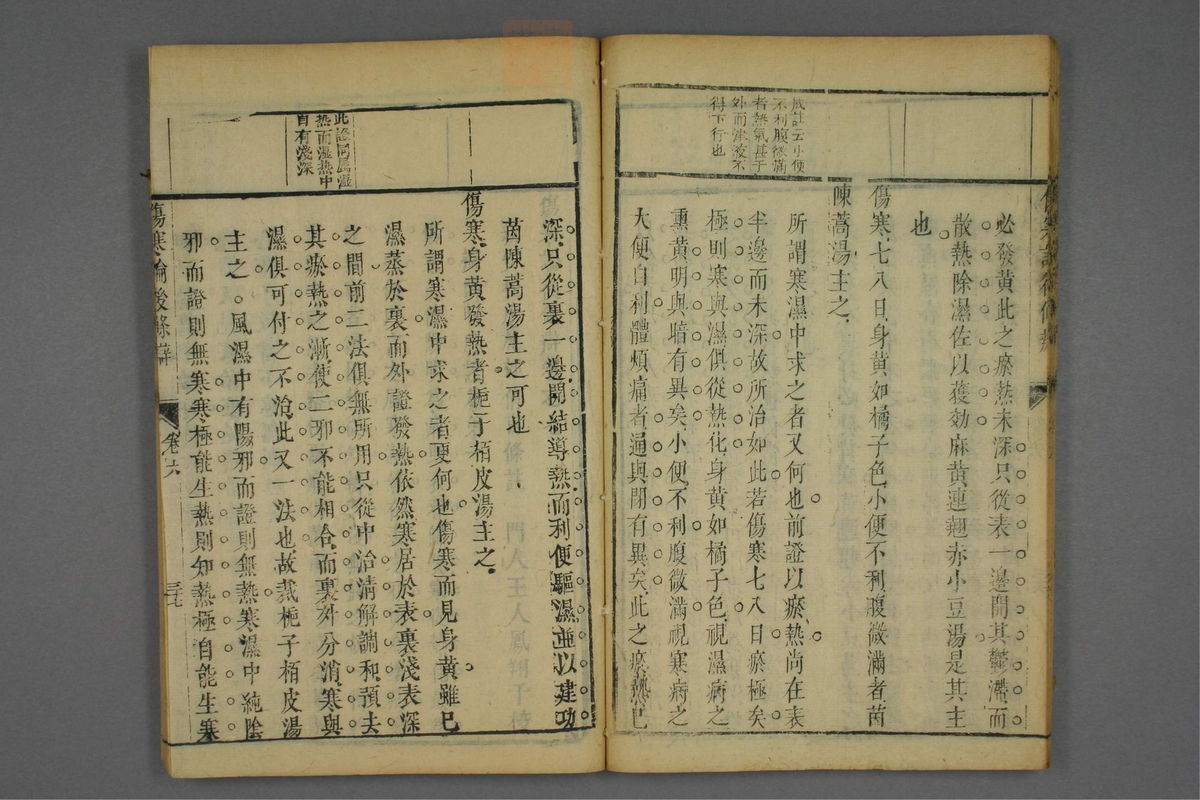 成註云小便
不利腹微滿
者熱氣甚于
外而津液不
得下行也
必發黃此之瘀熱未深只從表一邊開其鬱滯而
散熱除濕佐以獲効麻黃連翹赤小豆湯是其主
也
傷寒七八日身黃如橘子色小便不利腹微滿者茵
陳蒿湯主之
所謂寒濕中求之者又何也前證以瘀熱尚在表
半邊而未深故所治如此若傷寒七八日瘀極矣
極則寒與濕俱從熱化身黃如橘子色視濕病之
熏黃明與暗有異矣小便不利腹微滿視寒病之
大便自利體煩痛者通與閉有異矣此之瘀熱已
此證同屬濕
熱而濕熱中
自有淺深
深只從裏一邊開結導熱而利便驅濕並以建功
茵陳蒿湯主之可也
傷寒身黃發熱者梔子栢皮湯主之
所謂寒濕中求之者更何也傷寒而見身黃雖已
濕蒸於裏而外證發熱依然寒居於表裏淺表深
之間前二法俱無所用只從中治清解調和預去
其瘀熱之漸使二邪不能相合而裏外分消寒與
濕俱可付之不治此又一法也故裁梔子栢皮湯
主之。風濕中有陽邪而證則無熱寒濕中純陰
邪而證則無寒寒極能生熱則知熱極自能生寒
傷寒論後條辯
卷六
三七